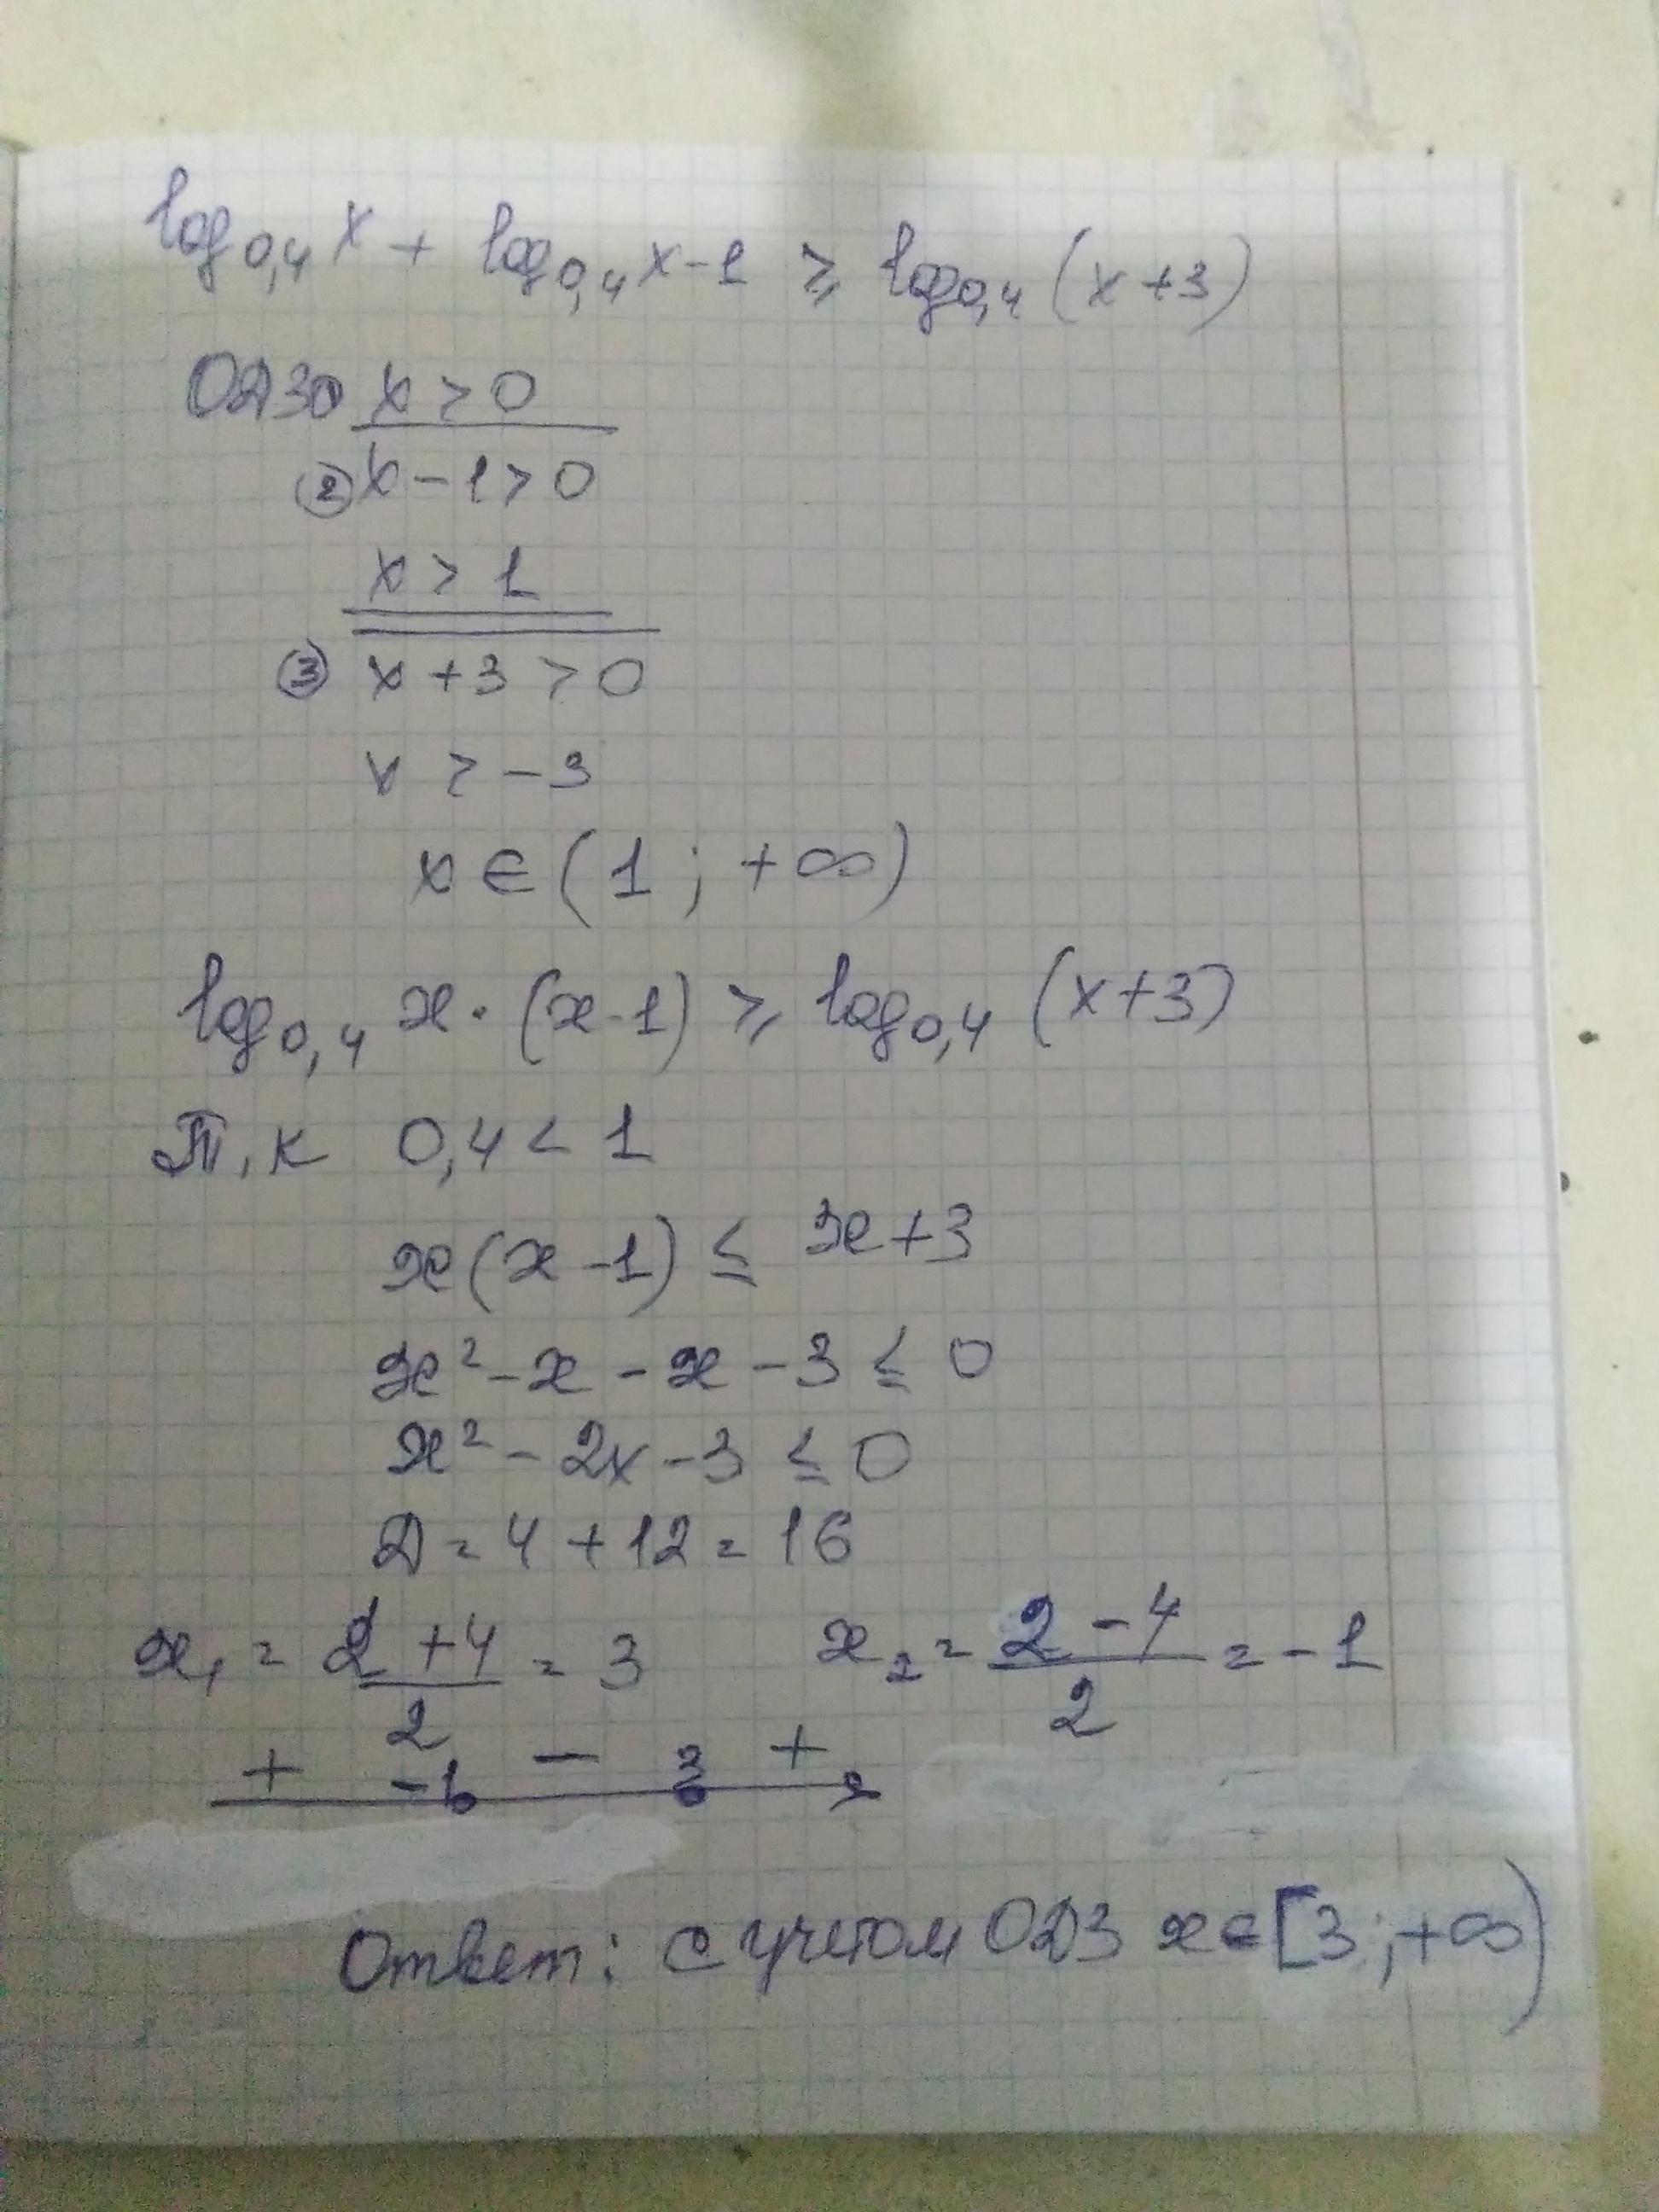 log₀,₄ x + log₀,₄ x-1 ⩾ log₀,₄ (x+3)
ОДЗ① x > 0
② x - 1 > 0
x > 1
③ x + 3 > 0
x > -3
x ∈ (1; +∞)
log₀,₄ x · (x-1) ⩾ log₀,₄ (x+3)
Т.к 0,4 < 1
x(x-1) ≤ x+3
x² - x - x - 3 ≤ 0
x² - 2x - 3 ≤ 0
D = 4 + 12 = 16
x₁ = (2+4)/2 = 3 x₂ = (2-4)/2 = -1
+ -1 - 3 +
Ответ: с учетом ОДЗ x ∈ [3; +∞)